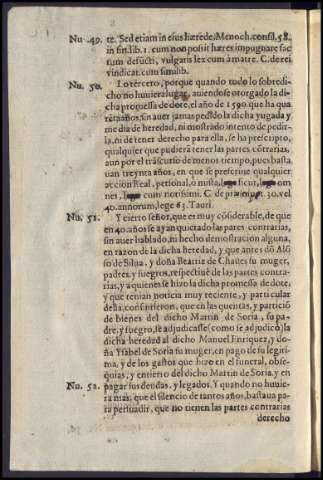 Nu. 49. te. Sed etiam in eius hærede, Menoch. consil. 58.
in fin. lib. 1. cum non possit hæres impugnare fac
tum defũcti, vulgaris lex cum à matre. C. de rei
vindicat. cum simlib.
Nu. 50. Lo tercero, porque quando todo lo sobredi-
cho no huuiera lugar, auiendose otorgado la di-
cha promessa de dote, el año de 1590. que ha qua
rẽta años, sin auer jamas pedido la dicha yugada y
media de heredad, ni mostrado intento de pedir-
la, ni de tener derecho para ella, se ha prescripto,
qualquier que pudiera tener las partes cõtrarias,
aun por el trascurso de menos tiempo, pues basta
uan treynta años, en que se prescriue qualquier
accion Real, personal, o mista, lege sicut, lege om
nes, lege cum notissimi. C. de præscript. 30. vel
40. annorum, lege 63. Tauri.
Nu. 51. Y cierto señor, que es muy cõsiderable, de que
en 40. años se ayan quietado las partes contrarias,
sin auer hablado, ni hecho demostracion alguna,
en razon de la dicha heredad, y que antes dõ Alõ
so de Silua, y doña Beatriz de Chaues su muger,
padres, y suegros, respectiuè de las partes contra-
rias, y a quienes se hizo la dicha promessa de dote,
y que tenian noticia muy reciente, y particular
della, consintieron, que en las quentas, y particiõ
de bienes del dicho Martin de Soria, su pa-
dre, y suegro, se adjudicasse (como se adjudicò) la
dicha heredad al dicho Manuel Enriquez, y do-
ña Ysabel de Soria su muger, en pago de su legiti-
ma, y de los gastos que hizo en el funeral, obse-
quias, y entierro del dicho Martin de Soria, y en
Nu. 52. pagar sus deudas, y legados. Y quando no huuie-
ra mas, que el silencio de tantos años, bastaua pa
ra persuadir, que no tienen las partes contrarias
derecho